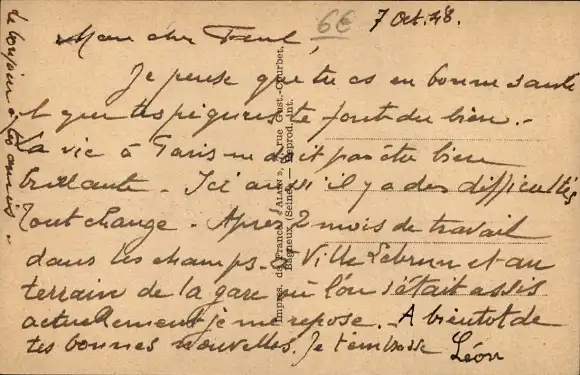 6€
7 Oct. 48.
Mon cher Paul,
Je pense que tu es en bonne santé
et que tes piqures te font du bien. -
La vie à Paris ne doit pas être bien
brillante. Ici aussi il y a des difficultés
Tout change. Après 2 mois de travail
dans les champs. Ville Lebrun et au
terrain de la gare où l'on s'était assis
actuellement je me repose. A bientot de
tes bonnes nouvelles. Je t'embrasse Léon
Le bonjour à tes amis.
Impres. de France « ALAIN », rue Gust.-Courbet,
Bagneux (Seine). — Reprod. int.